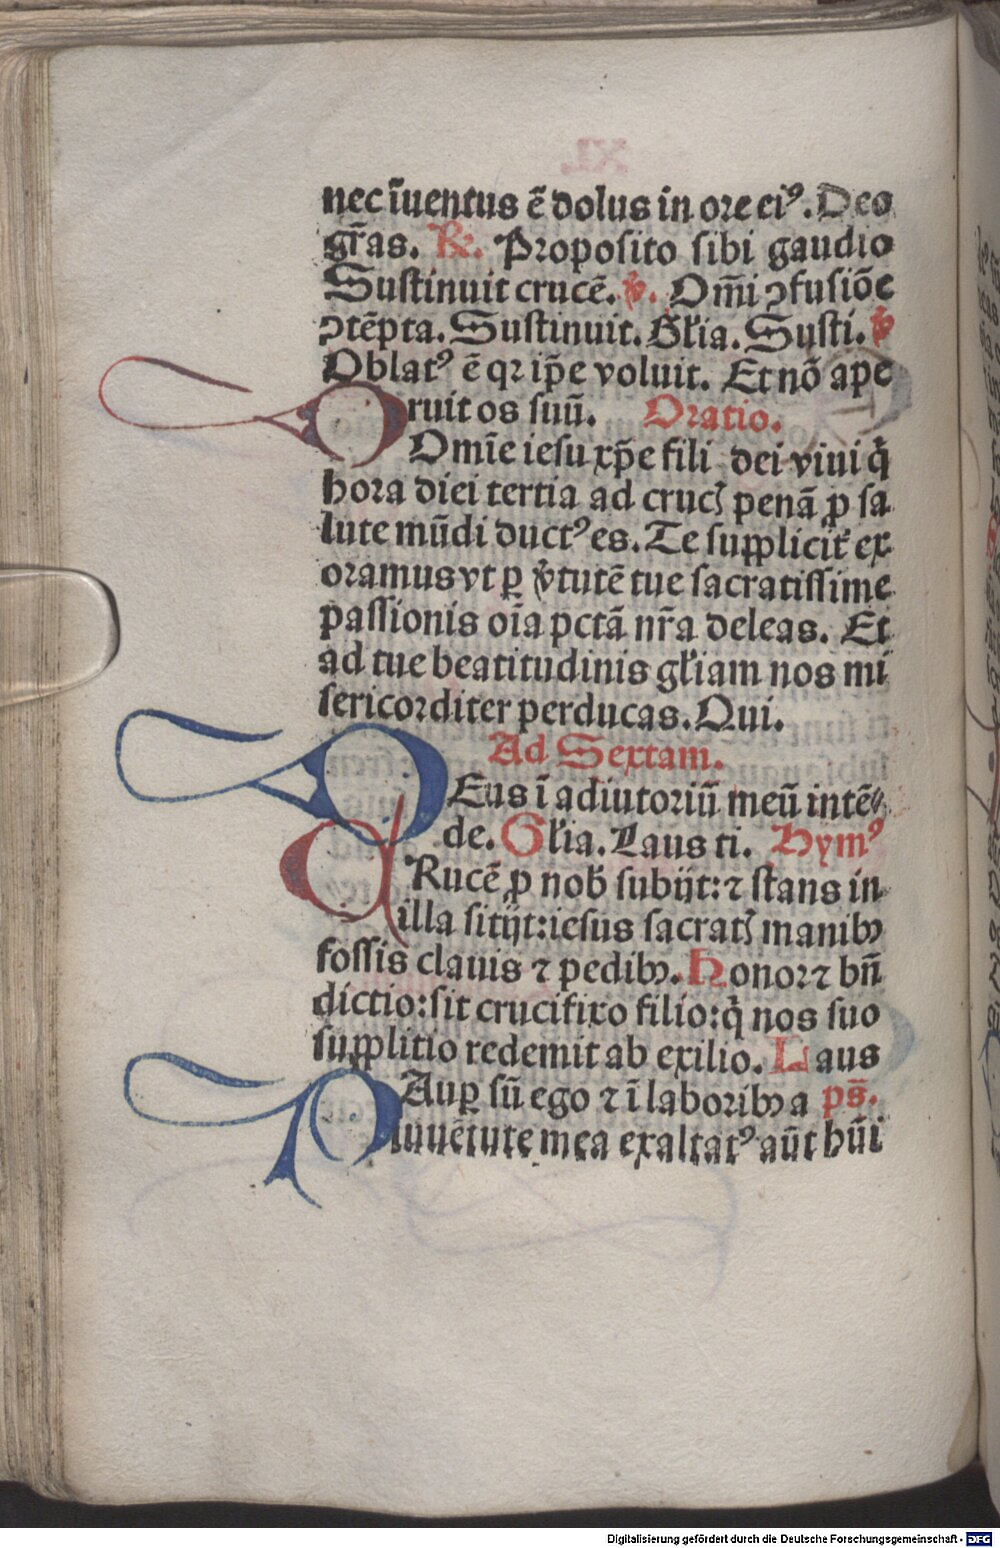 nec īuentus ē dolus in ore eiꝰ. Deo
gr̄as. ℟. Proposito sibi gaudio
Sustinuit crucē. ℣. Om̄i ꝯfusiōe
ꝯtēpta. Sustinuit. Gl'ia. Susti. ℣
Oblatꝰ ē qꝛ ip̄e voluit. Et nō ape
ruit os suū. Oratio.
Domīe iesu xp̄e fili dei viui q̇
hora diei tertia ad crucꝭ penā ꝓ sa
lute mūdi ductꝰ es. Te supplicit' ex
oramus vt ꝑ v̓tutē tue sacratissime
passionis oīa pctā nr̄a deleas. Et
ad tue beatitudinis gl'iam nos mi
sericorditer perducas. Qui.
Ad Sextam.
DEus ī adiutoriū meū intē⸗
de. Gl'ia. Laus ti. Hymꝰ
CRucē ꝓ nob̓ subijt: ⁊ stans in
illa sitijt: iesus sacratꝭ manibꝫ
fossis clauis ⁊ pedibꝫ. Honor ⁊ bn̄
dictio: sit crucifixo filio: q̇ nos suo
supplitio redemit ab exilio. Laus
PAuꝑ sū ego ⁊ ī laboribꝫ a ps̄.
iuuētute mea exaltatꝰ aūt hūi
Digitalisierung gefördert durch die Deutsche Forschungsgemeinschaft - DFG